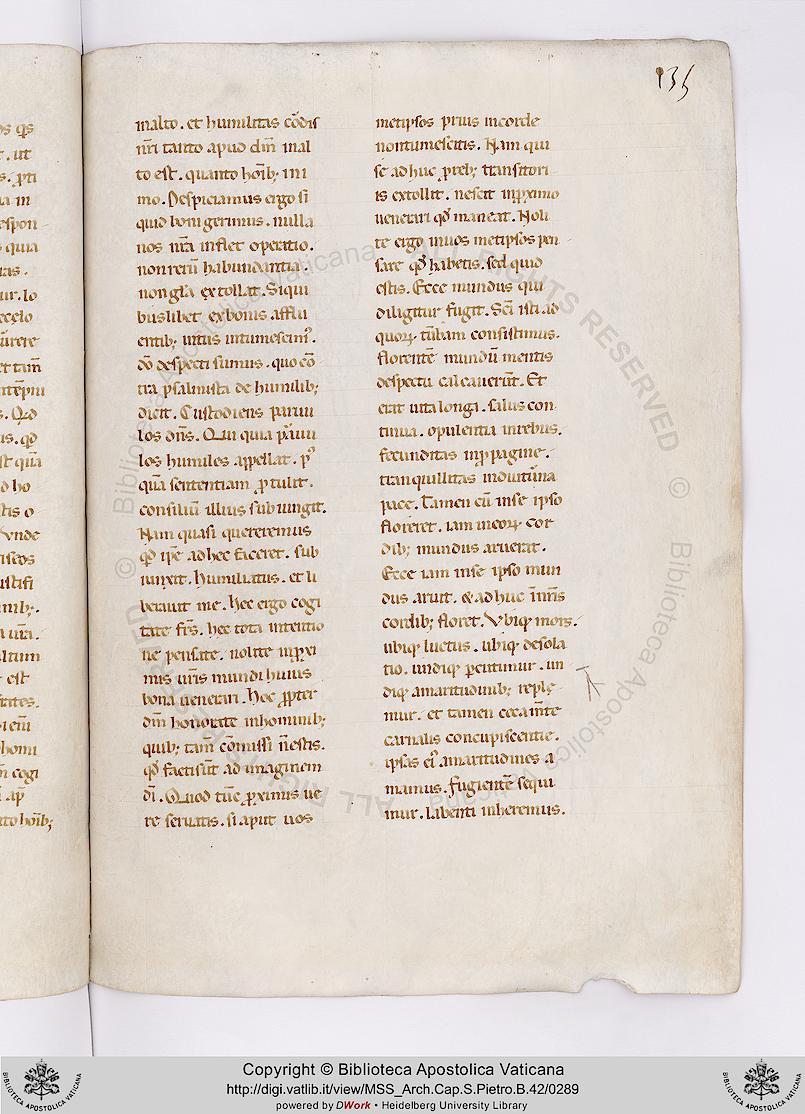 135
in alto. et humilitas cõdis
nr̃i tanto apud dm̃ in al
to est. quanto hoĩb; in i
mo. Despiciamus ergo si
quid boni gerimus. nulla
nos nr̃a inflet operatio.
non rerũ habundantia.
non gl̃a extollat. Si qui
buslibet ex bonis afflu
entib; intus intumescim᾽.
dõ despecti sumus. quo cõ
tra psalmista de humilib;
dicit. Custodiens paruu
los dñs. Qui quia paruu
los humiles appellat. p᾽
quã sententiam ptulit.
consiliũ illius subiungit.
Nam quasi quereremus
qd̃ ip̃e ad hec faceret. sub
iunxit. humiliatus. et li
berauit me. Hec ergo cogi
tate fr̃s. hec tota intentio
ne pensate. nolite in pxi
mis ur̃is mundi huius
bona uenerari. Hoc ppter
dm̃ honorate in hominib;
quib; tam̃ cõmissi ñ estis.
qd̃ facti sũt ad imaginem
dĩ. Quod tũc pximis ue
re seruatis. si aput uos
metipsos prius in corde
non tumescitis. Nam qui
se adhuc p reb; transitori
is extollit. nescit in pximo
uenerari qd̃ maneat. Noli
te ergo in uos metipsos pen
sare qd̃ habetis. sed quid
estis. Ecce mundus qui
diligitur fugit. Sc̃i isti ad
quorꝝ tũbam consistimus.
florentẽ mundũ mentis
despectu calcauerũt. Et
erat uita longa. salus con
tinua. opulentia in rebus.
fecunditas in ppagine.
tranquillitas in diuturna
pace. Tamen cũ in se ipso
floreret. iam in eorꝝ cor
dib; mundus aruerat.
Ecce iam in se ipso mun
dus aruit. & adhuc in nr̃is
cordib; floret. Ubiq; mors.
ubiq; luctus. ubiq; desola
tio. undiq; percutimur. un
diq; amaritudinib; reple
mur. et tamen ceca mẽte
carnalis concupiscentie.
ipsas ei᾽ amaritudines a
mamus. fugientẽ sequi
mur. labenti inheremus.
Copyright © Biblioteca Apostolica Vaticana
http://digi.vatlib.it/view/MSS_Arch.Cap.S.Pietro.B.42/0289
powered by DWork • Heidelberg University Library